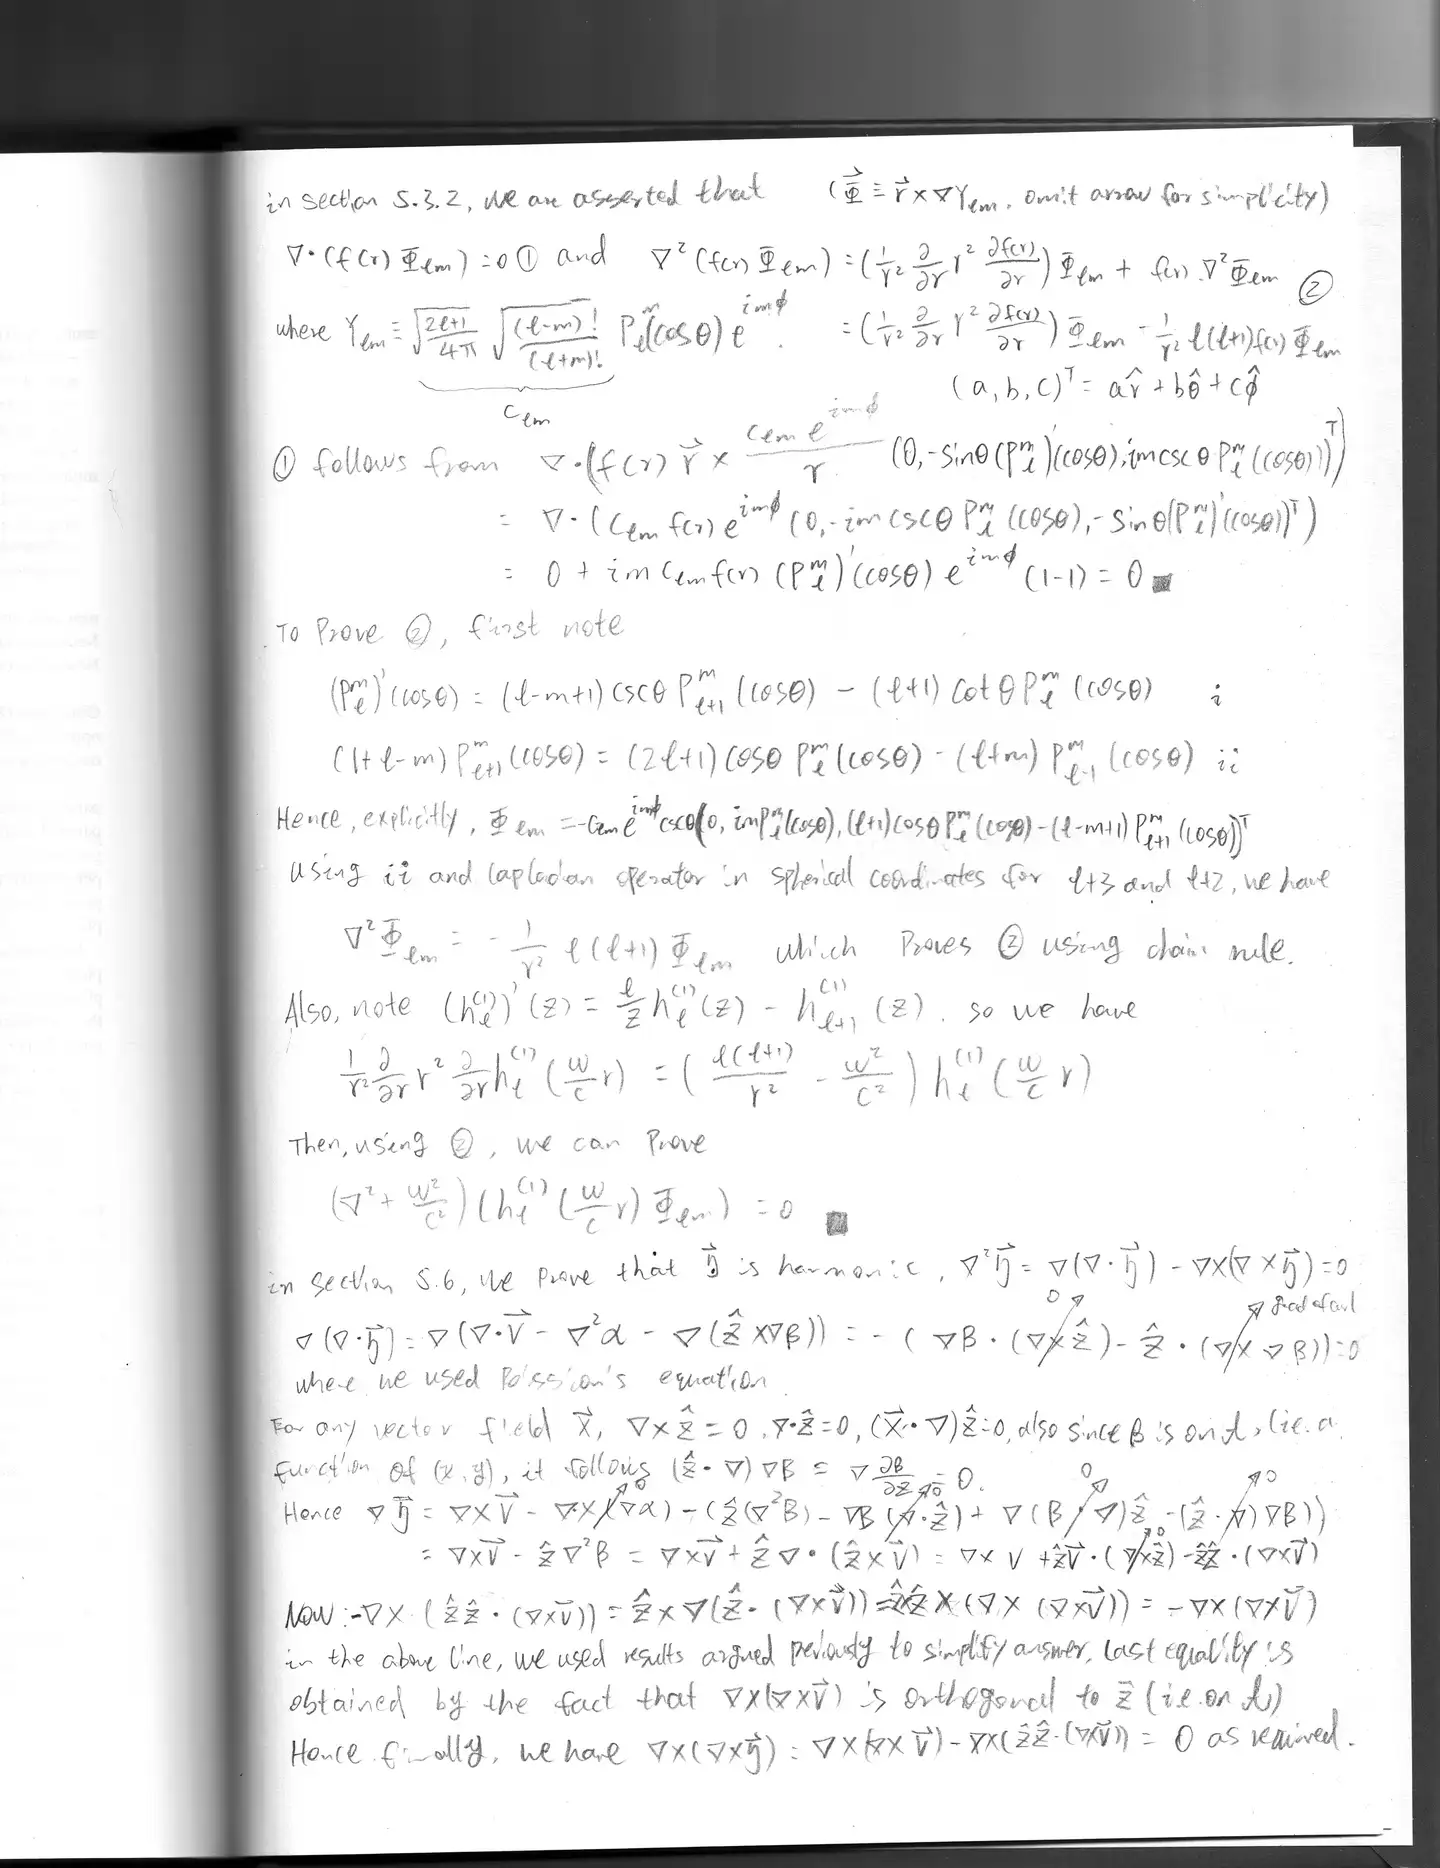 in section 5.3.2, we are asserted that (Φ⃗ ≡ r⃗ × ∇Yℓm, omit arrow for simplicity)
∇·(f(r) Φℓm) = 0 ① and ∇²(f(r) Φℓm) = (1/r² ∂/∂r r² ∂f(r)/∂r) Φℓm + f(r) ∇²Φℓm ②
where Yℓm ≡ √(2ℓ+1/4π) √((ℓ-m)!/(ℓ+m)!) Pℓ^m(cosθ) e^{imϕ}. = (1/r² ∂/∂r r² ∂f(r)/∂r) Φℓm - 1/r² ℓ(ℓ+1)f(r) Φℓm
Cℓm (a, b, c)^T = a r̂ + b θ̂ + c ϕ̂
① follows from ∇·(f(r) r⃗ × Cℓm e^{imϕ}/r (0, -sinθ (Pℓ^m)'(cosθ), im cscθ Pℓ^m (cosθ))^T)
= ∇·(Cℓm f(r) e^{imϕ} (0, -im cscθ Pℓ^m (cosθ), -sinθ(Pℓ^m)'(cosθ))^T)
= 0 + im Cℓm f(r) (Pℓ^m)'(cosθ) e^{imϕ} (1-1) = 0 ■
To Prove ②, first note
(Pℓ^m)'(cosθ) = (ℓ-m+1) cscθ P_{ℓ+1}^m (cosθ) - (ℓ+1) cotθ Pℓ^m (cosθ) i
(1+ℓ-m) P_{ℓ+1}^m (cosθ) = (2ℓ+1) cosθ Pℓ^m (cosθ) - (ℓ+m) P_{ℓ-1}^m (cosθ) ii
Hence, explicitly, Φℓm = -Cℓm e^{imϕ} cscθ(0, im Pℓ^m(cosθ), (ℓ+1)cosθ Pℓ^m (cosθ) - (ℓ-m+1) P_{ℓ+1}^m (cosθ))^T
using ii and Laplacian operator in spherical coordinates for ℓ+3 and ℓ+2, we have
∇²Φℓm = - 1/r² ℓ(ℓ+1) Φℓm which Proves ② using chain rule.
Also, note (hℓ^(1))'(z) = ℓ/z hℓ^(1)(z) - h_{ℓ+1}^(1) (z). so we have
1/r² ∂/∂r r² ∂/∂r hℓ^(1) (ω/c r) = (ℓ(ℓ+1)/r² - ω²/c²) hℓ^(1) (ω/c r)
Then, using ②, we can Prove
(∇² + ω²/c²)(hℓ^(1) (ω/c r) Φℓm) = 0 ■
in section 5.6, we prove that η⃗ is harmonic, ∇²η⃗ = ∇(∇·η⃗) - ∇×(∇×η⃗) = 0
0 grad of curl
∇(∇·η⃗) = ∇(∇·V⃗ - ∇²α - ∇(ẑ×∇β)) = -(∇β·(∇×ẑ) - ẑ·(∇×∇β)) = 0
where we used Poission's equation
For any vector field X⃗, ∇×ẑ = 0, ∇·ẑ = 0, (X⃗·∇)ẑ = 0, also since β is on A, (i.e. a
function of (x, y), it follows (ẑ·∇)∇β = ∇ ∂β/∂z = 0.
Hence ∇ η⃗ = ∇×V⃗ - ∇×(∇α) - (ẑ(∇²β) - ∇β(∇·ẑ) + ∇(β ∇)ẑ - (ẑ·∇)∇β))
= ∇×V⃗ - ẑ∇²β = ∇×V⃗ + ẑ∇·(ẑ×V⃗) = ∇×V + ẑV⃗·(∇×ẑ) - ẑẑ·(∇×V⃗)
Now: -∇×(ẑẑ·(∇×V⃗)) = ẑ×∇(ẑ·(∇×V⃗)) = ẑ×ẑ×(∇×(∇×V⃗)) = -∇×(∇×V⃗)
in the above line, we used results argued perviously to simplify answer, last equality is
obtained by the fact that ∇×(∇×V⃗) is orthogonal to z⃗ (i.e. on A)
Hence finally, we have ∇×(∇×η⃗) = ∇×(∇×V⃗) - ∇×(ẑẑ·(∇×V⃗)) = 0 as required.